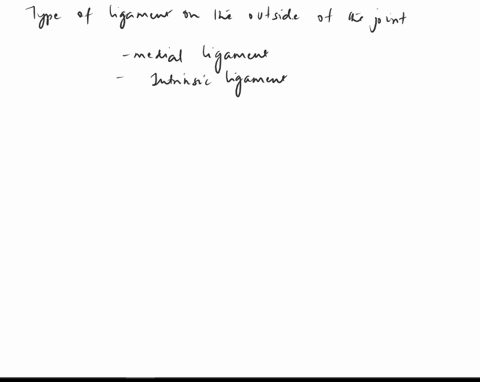 Type of ligament on the outside of the joint
- medial ligament
- Intrinsic ligament